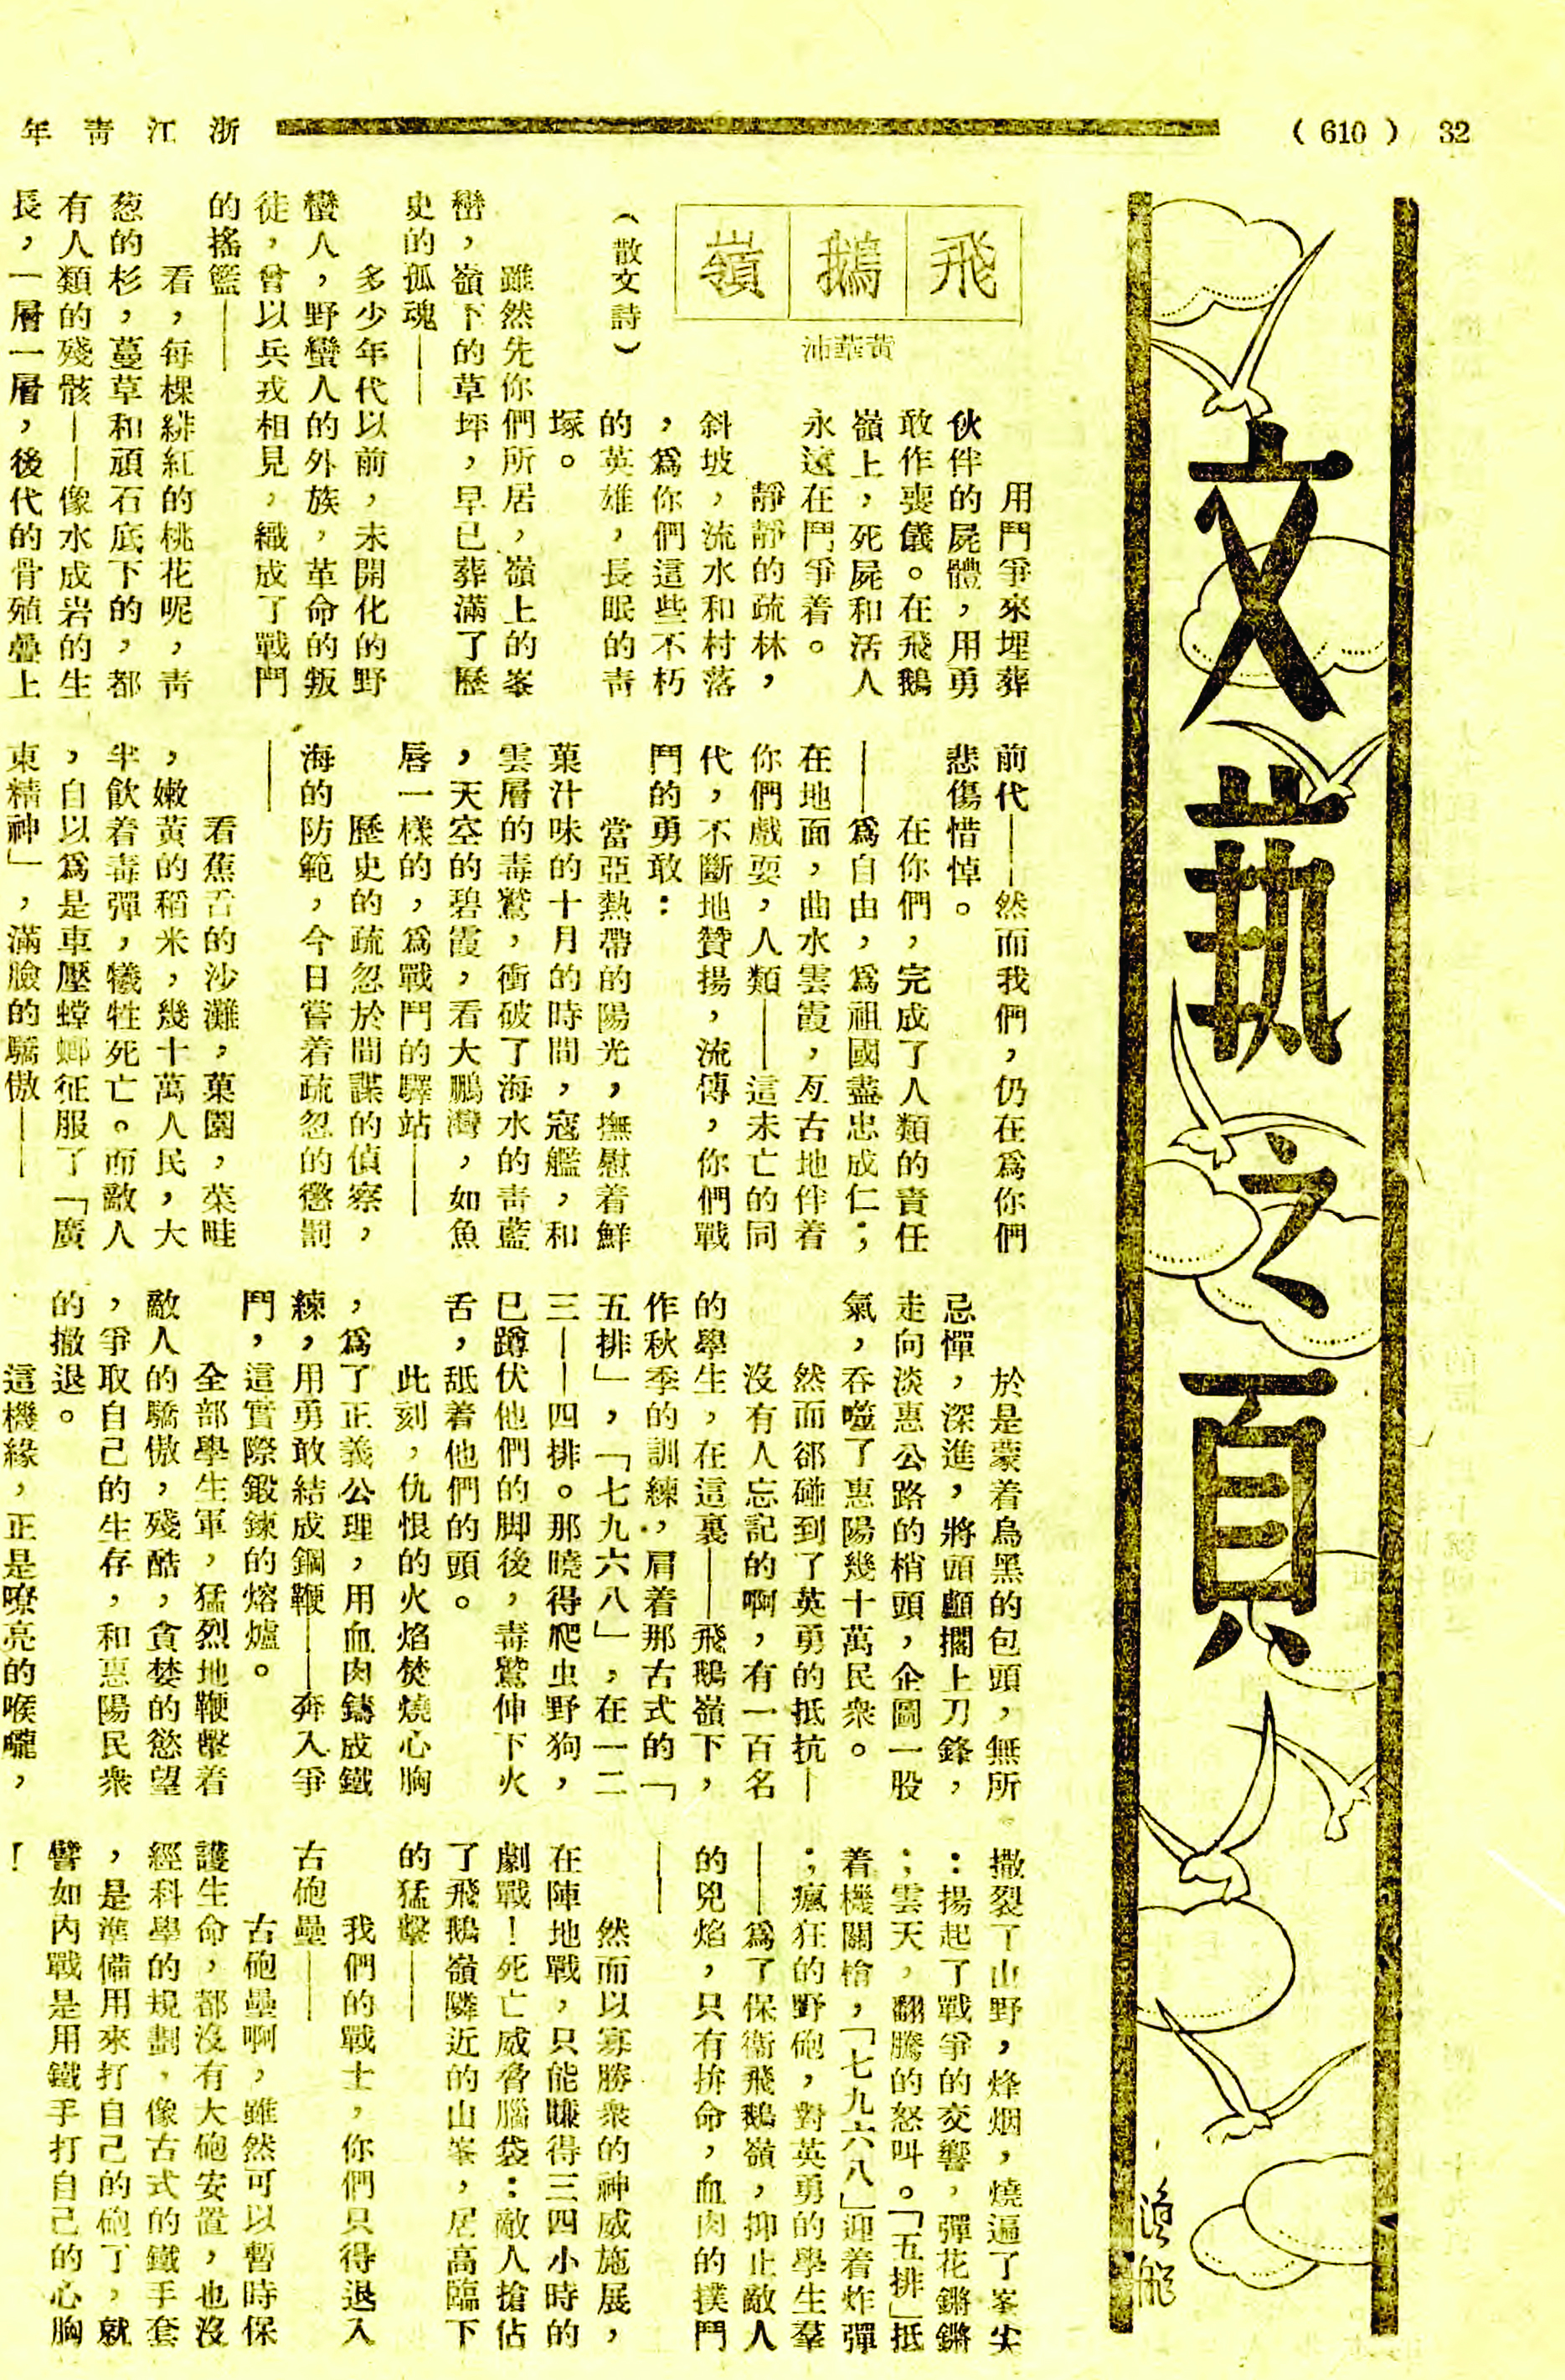 浙江青年
( 610 ) 32
文藝之頁
飛鵝嶺
黃華沛
（散文詩）
用鬥爭來埋葬
伙伴的屍體，用勇
敢作喪儀。在飛鵝
嶺上，死屍和活人
永遠在鬥爭着。
靜靜的疏林，
斜坡，流水和村落
，爲你們這些不朽
的英雄，長眠的靑
塚。
雖然先你們所居，嶺上的峯
巒，嶺下的草坪，早已葬滿了歷
史的孤魂——
多少年代以前，未開化的野
蠻人，野蠻人的外族，革命的叛
徒，曾以兵戎相見，織成了戰鬥
的搖籃——
看，每棵緋紅的桃花呢，靑
葱的杉，蔓草和頑石底下的，都
有人類的殘骸——像水成岩的生
長，一層一層，後代的骨殖疊上
前代——然而我們，仍在爲你們
悲傷惜悼。
在你們，完成了人類的責任
——爲自由，爲祖國盡忠成仁；
在地面，曲水雲霞，亙古地伴着
你們戲耍，人類——這未亡的同
代，不斷地贊揚，流傳，你們戰
鬥的勇敢：
當亞熱帶的陽光，撫慰着鮮
菓汁味的十月的時間，寇艦，和
雲層的毒鷲，衝破了海水的靑藍
，天空的碧霞，看大鵬灣，如魚
唇一樣的，爲戰鬥的驛站——
歷史的疏忽於間諜的偵察，
海的防範，今日嘗着疏忽的懲罰
——
看蕉舌的沙灘，菓園，菜畦
，嫩黃的稻米，幾十萬人民，大
半飮着毒彈，犧牲死亡。而敵人
，自以爲是車壓螳螂征服了「廣
東精神」，滿臉的驕傲——
於是蒙着烏黑的包頭，無所
忌憚，深進，將頭顱擱上刀鋒，
走向淡惠公路的梢頭，企圖一股
氣，吞噬了惠陽幾十萬民衆。
然而郤碰到了英勇的抵抗—
沒有人忘記的啊，有一百名
的學生，在這裏——飛鵝嶺下，
作秋季的訓練，肩着那古式的「
五排」，「七九六八」，在一二
三——四排。那曉得爬虫野狗，
已蹲伏他們的脚後，毒鷲伸下火
舌，舐着他們的頭。
此刻，仇恨的火焰焚燒心胸
，爲了正義公理，用血肉鑄成鐵
練，用勇敢結成鋼鞭——奔入爭
鬥，這實際鍛鍊的熔爐。
全部學生軍，猛烈地鞭擊着
敵人的驕傲，殘酷，貪婪的慾望
，爭取自己的生存，和惠陽民衆
的撤退。
這機緣，正是嘹亮的喉嚨，
撒裂了山野，烽烟，燒遍了峯尖
：揚起了戰爭的交響，彈花鏘鏘
；雲天，翻騰的怒叫。「五排」抵
着機關槍，「七九六八」迎着炸彈
；瘋狂的野砲，對英勇的學生羣
——爲了保衞飛鵝嶺，抑止敵人
的兇焰，只有拚命，血肉的撲鬥
——
然而以寡勝衆的神威施展，
在陣地戰，只能賺得三四小時的
劇戰！死亡威脅腦袋：敵人搶佔
了飛鵝嶺隣近的山峯，居高臨下
的猛擊——
我們的戰士，你們只得退入
古砲壘——
古砲壘啊，雖然可以暫時保
護生命，都沒有大砲安置，也沒
經科學的規劃，像古式的鐵手套
，是準備用來打自己的砲了，就
譬如內戰是用鐵手打自己的心胸
！